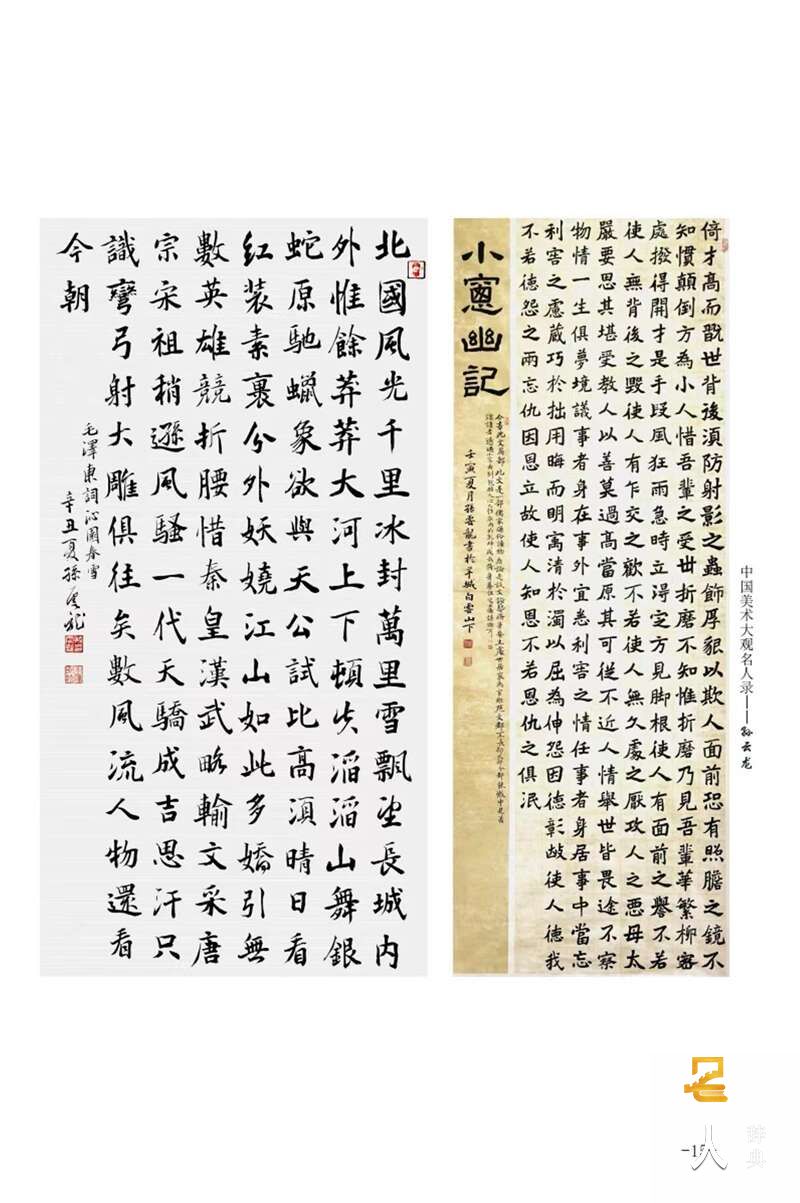 北國風光千里冰封萬里雪飄望長城內
外惟餘莽莽大河上下頓失滔滔山舞銀
蛇原馳蠟象欲與天公試比高須晴日看
紅装素裹分外妖嬈江山如此多嬌引無
數英雄競折腰惜秦皇漢武略輸文采唐
宗宋祖稍遜風騷一代天驕成吉思汗只
識彎弓射大雕俱往矣數風流人物還看
今朝
毛澤東詞沁園春雪
辛丑夏孫雲龍
倚才高而翫世背後須防射影之蟲飾厚貌以欺人面前恐有照膽之鏡不
知慣顛倒方為小人惜吾輩之受世折磨不知惟折磨乃見吾輩華繁柳密
處撥得開才是手段風狂雨急時立得定方見脚根使人有面前之譽不若
使人無背後之毀使人有乍交之歡不若使人無久處之厭攻人之惡毋太
嚴要思其堪受教人以善莫過高當原其可從不近人情舉世皆畏途不察
物情一生俱夢境議事者身在事外宜悉利害之情任事者身居事中當忘
利害之慮藏巧於拙用晦而明寓清於濁以屈為伸怨因德彰故使人德我
不若德怨之兩忘仇因恩立故使人知恩不若恩仇之俱泯
小窻幽記
壬寅夏月孫雲龍書於羊城白雲山下
中国美术大观名人录——孙云龙
人
辞典